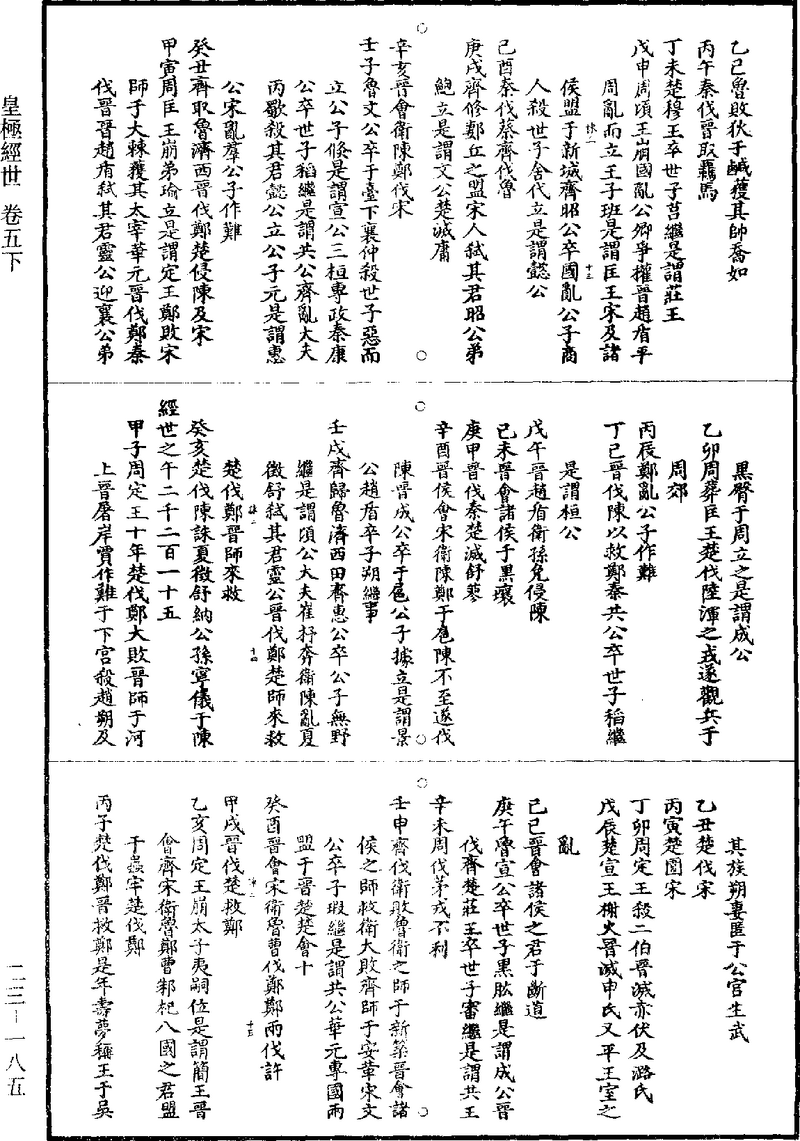 乙巳魯敗狄于鹹獲其帥喬如
丙午秦伐晉取羈馬
丁未楚穆王卒世子莒繼是謂莊王
戊申周頃王崩國亂公卿爭權晉趙盾平
周亂而立王子班是謂匡王宋及諸
侯盟于新城齊昭公卒國亂公子商
人殺世子舍代立是謂懿公
己酉秦伐蔡齊伐魯
庚戌齊修鄭丘之盟宋人弒其君昭公弟
鮑立是謂文公楚滅庸
辛亥晉會衛陳鄭伐宋
壬子魯文公卒于臺下襄仲殺世子惡而
立公子倭是謂宣公三桓專政秦康
公卒世子稻繼是謂共公齊亂大夫
丙歜殺其君懿公立公子元是謂惠
公宋亂羣公子作難
癸丑齊取魯濟西晉伐鄭楚侵陳及宋
甲寅周匡王崩弟瑜立是謂定王鄭敗宋
師于大棘獲其太宰華元晉伐鄭秦
伐晉晉趙盾弒其君靈公迎襄公弟
黑臀于周立之是謂成公
乙卯周葬匡王楚伐陸渾之戎遂觀兵于
周郊
丙辰鄭亂公子作難
丁巳晉伐陳以救鄭秦共公卒世子稻繼
是謂桓公
戊午晉趙盾衛孫免侵陳
己未晉會諸侯于黑壤
庚申晉伐秦楚滅舒蓼
辛酉晉侯會宋衛陳鄭于扈陳不至遂伐
陳晉成公卒于扈公子據立是謂景
公趙盾卒子朔繼事
壬戌齊歸魯濟西田齊惠公卒公子無野
繼是謂頃公大夫崔杼奔衛陳亂夏
徵舒弒其君靈公晉伐鄭楚師來救
楚伐鄭晉師來救
癸亥楚伐陳誅夏徵舒納公孫寧儀于陳
經世之午二千二百一十五
甲子周定王十年楚伐鄭大敗晉師于河
上晉屠岸賈作難于下宮殺趙朔及
其族朔妻匿于公宮生武
乙丑楚伐宋
丙寅楚圍宋
丁卯周定王殺二伯晉滅赤狄及潞氏
戊辰楚宣王榭火晉滅申氏又平王室之
亂
己巳晉會諸侯之君于斷道
庚午魯宣公卒世子黑肱繼是謂成公晉
伐齊楚莊王卒世子審繼是謂共王
辛未周伐茅戎不利
壬申齊伐衛敗魯衛之師于新築晉會諸
侯之師救衛大敗齊師于安華宋文
公卒子瑕繼是謂共公華元專國兩
盟于晉楚楚會十
癸酉晉會宋衛魯曹伐鄭鄭兩伐許
甲戌晉伐楚救鄭
乙亥周定王崩太子夷嗣位是謂簡王晉
會齊宋衛魯鄭曹邾杞八國之君盟
于蟲牢楚伐鄭
丙子楚伐鄭晉救鄭是年壽夢稱王于吳
皇極經世 卷五下
二三-一八五